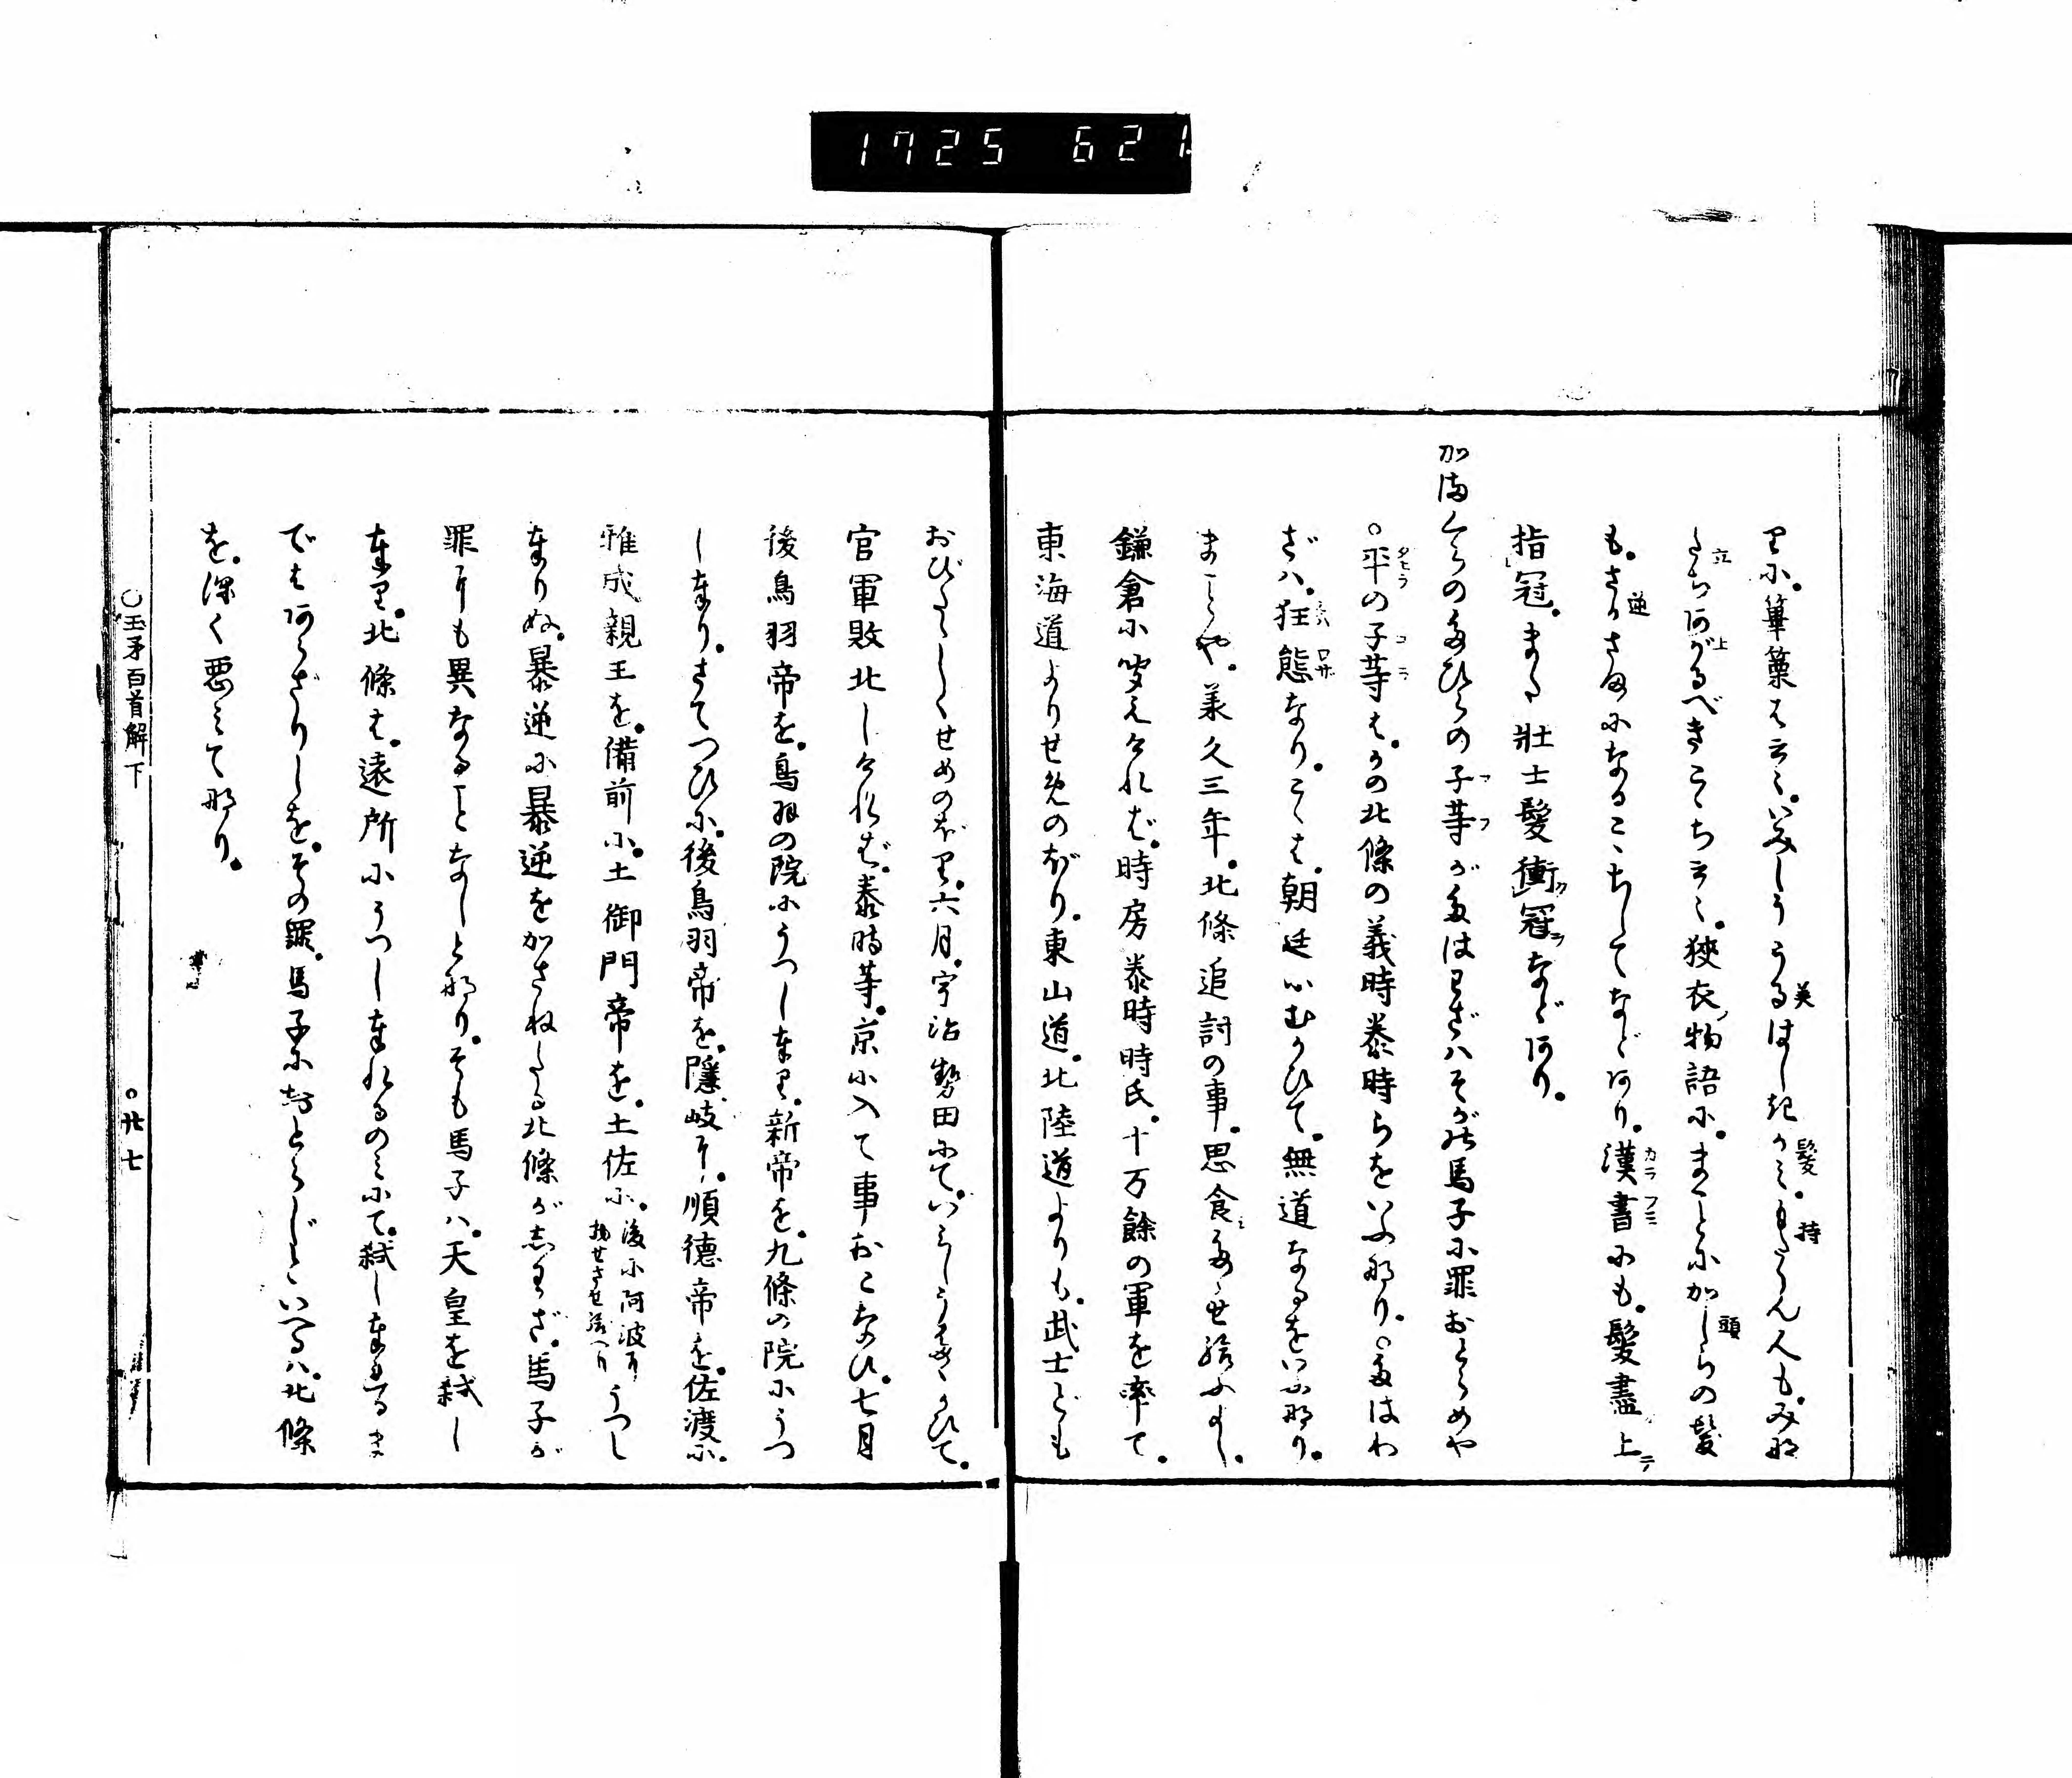 1725 621
里に。篳篥はさく。いみしううるはしきかみもたらん人も。みな
たちあがるべきこゝちすく。狭衣物語に。まことにかしらの髪
も。さかさまになるこゝちしてなどあり。漢書にも。髪盡上
指冠。また壮士髪衝冠などあり。
かまくらのたひらの子等がたはわざハそがの馬子に罪おとらめや
○平の子等は。かの北條の義時泰時らをいふなり。○たはわ
ざハ。狂態なり。こゝは。朝廷にむかひて。無道なるをいふなり。
まことや。承久三年。北條追討の事。思食たゝせ給ふよし。
鎌倉に聞えけれバ。時房泰時時氏。十万餘の軍を率て。
東海道よりせめのぼり。東山道。北陸道よりも。武士ども
おびたゝしくせめのぼり。六月。宇治勢田にて。いみしうたゝかひて。
官軍敗北しけれバ。泰時等。京に入て事おこなひ。七月
後鳥羽帝を。鳥羽の院にうつし奉り。新帝を。九條の院にうつ
し奉り。さてつひに。後鳥羽帝を。隱岐に。順徳帝を。佐渡に。
雅成親王を。備前に。土御門帝を。土佐に。後に阿波にうつし
移せさせ給へり
奉りぬ。暴逆に暴逆をかさねたる北條がしわざ。馬子が
罪にも異なることなしとなり。そも馬子ハ。天皇を弑し
奉り。北條は。遠所にうつし奉れるのミにて。弑し奉れるま
でもあらざりしを。その罪。馬子におとらじといへるハ。北條
を。深く悪ミてなり。
○玉矛百首解下
○廿七